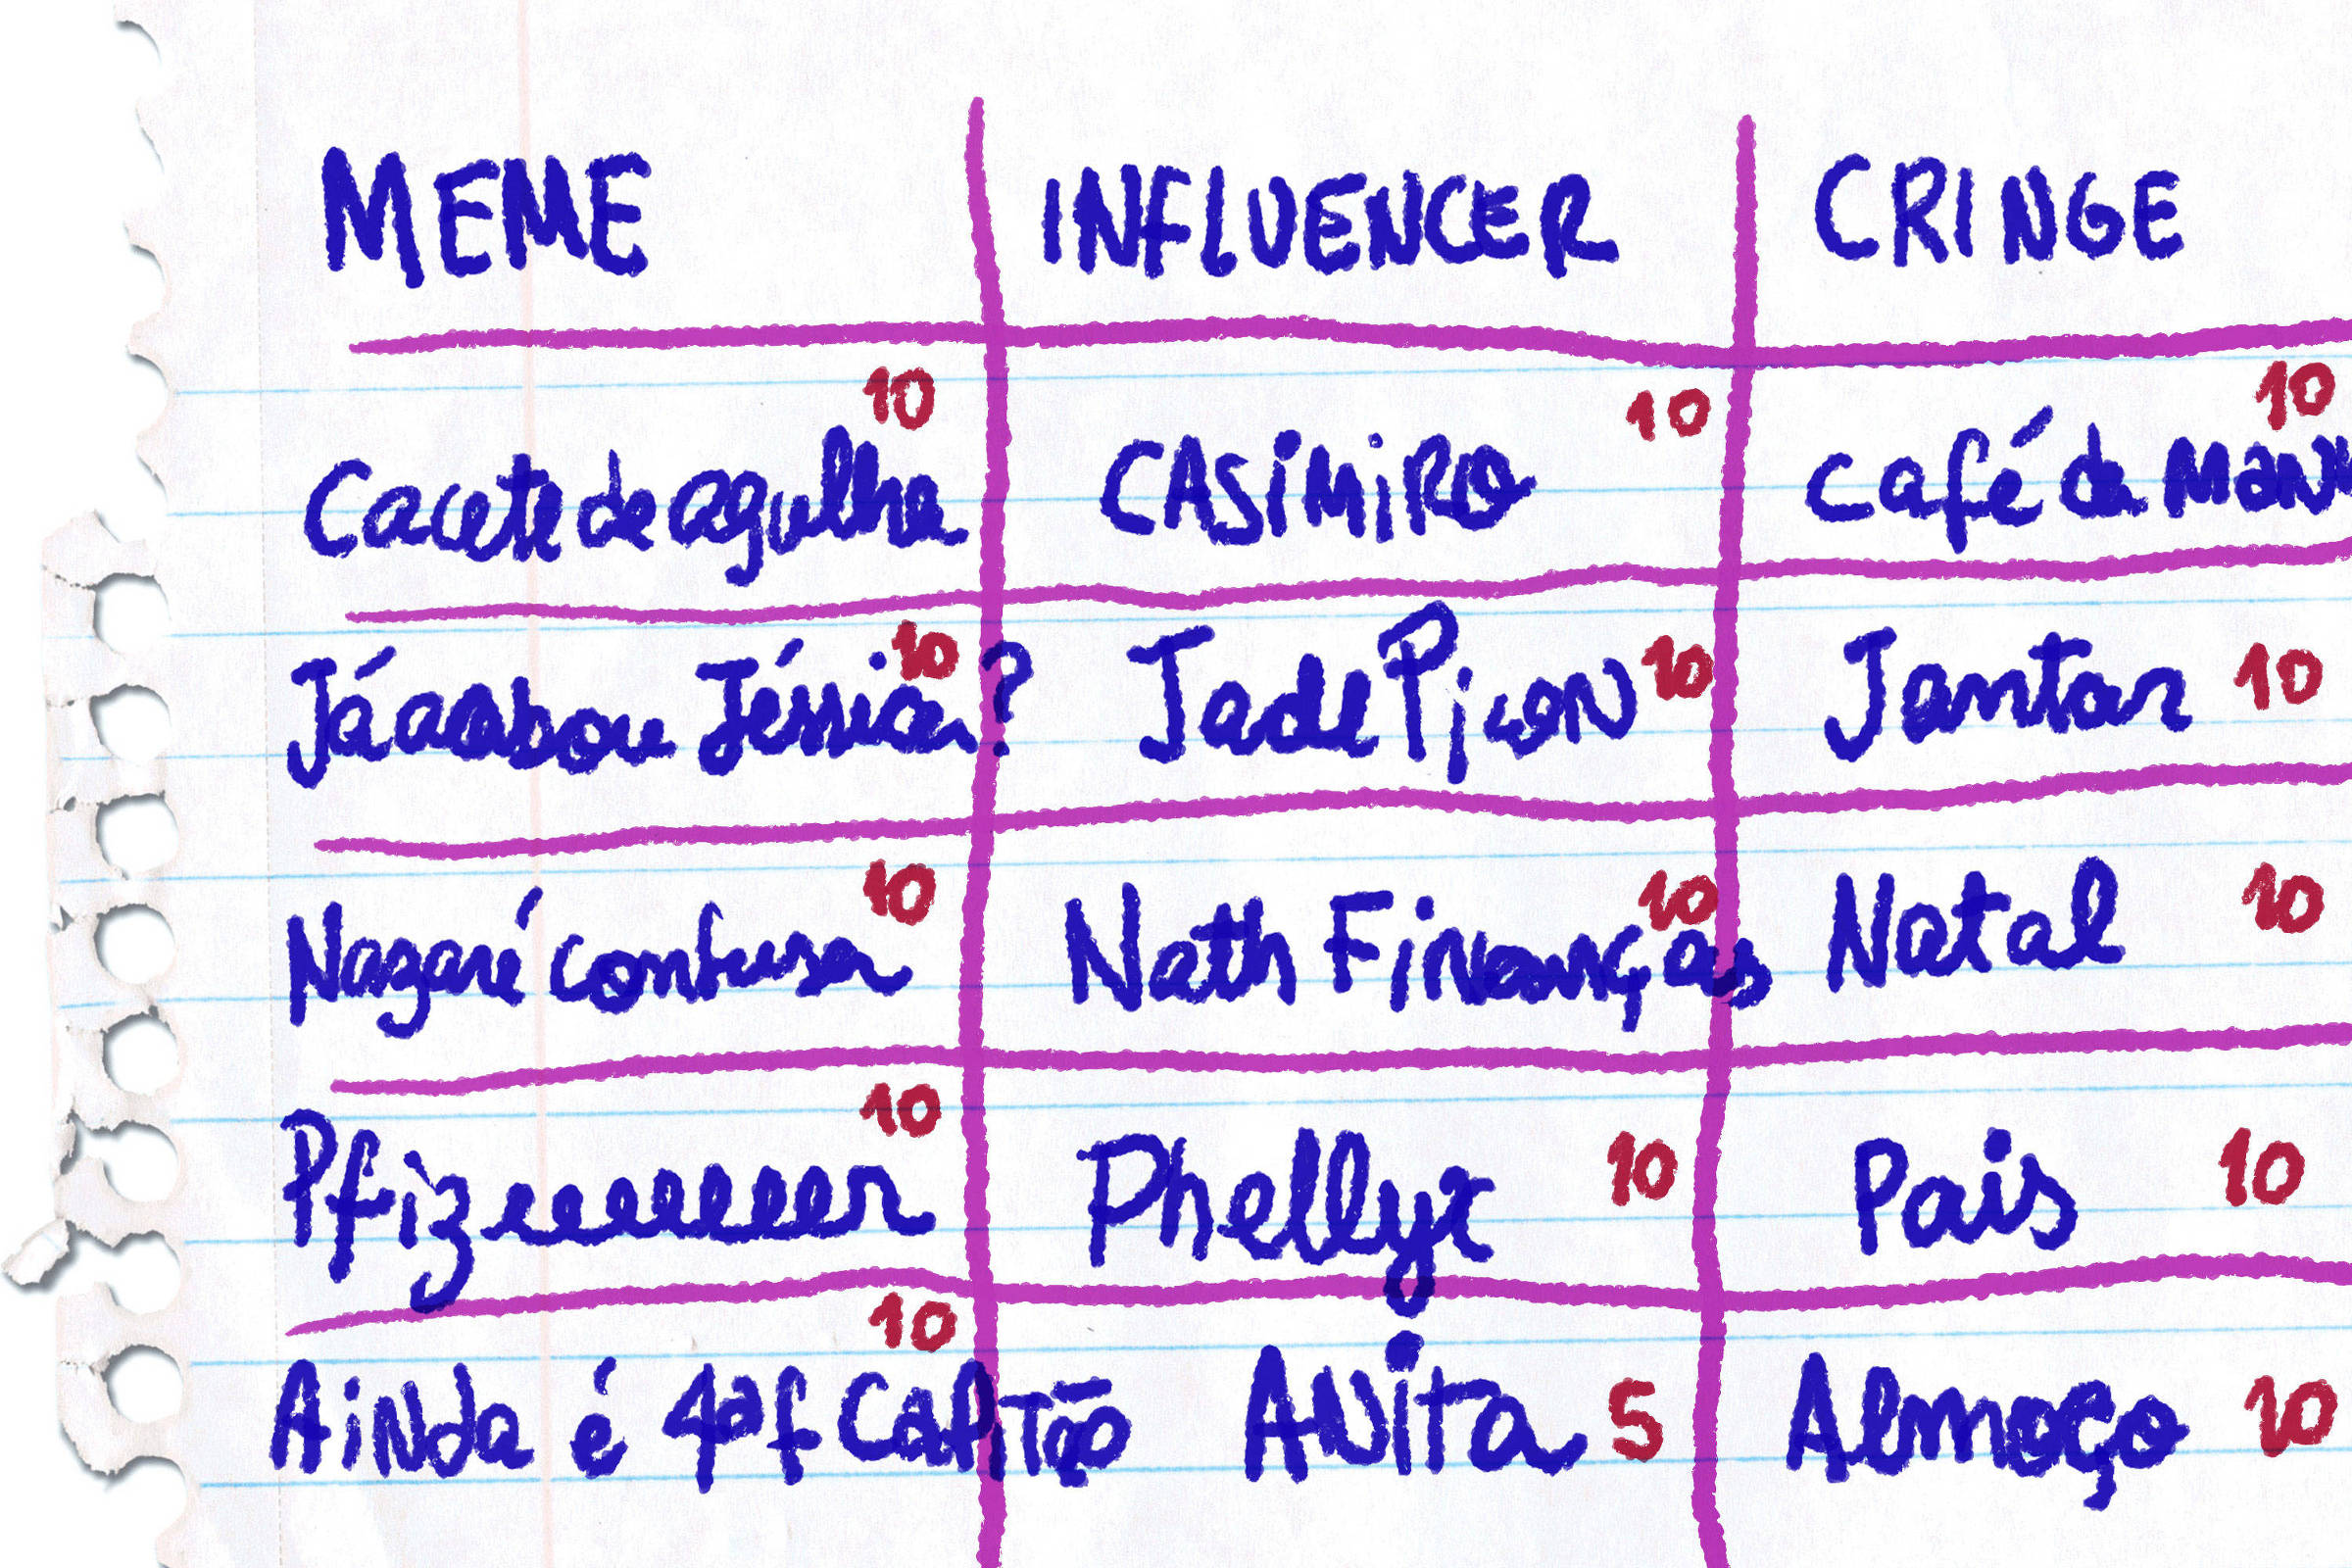 MEME INFLUENCER CRINGE
10 10 10
Cacete de agulha CASIMIRO Café da MANH
10 10 10
Já acabou Jéssica? Jade Picon Jantar
10 10 10
Nazaré confusa Nath Finanças Natal
10 10 10
Pfizeeeeeeeer Phellyx Pais
10 5 10
Ainda é 4ªf Capitão Anita Almoço